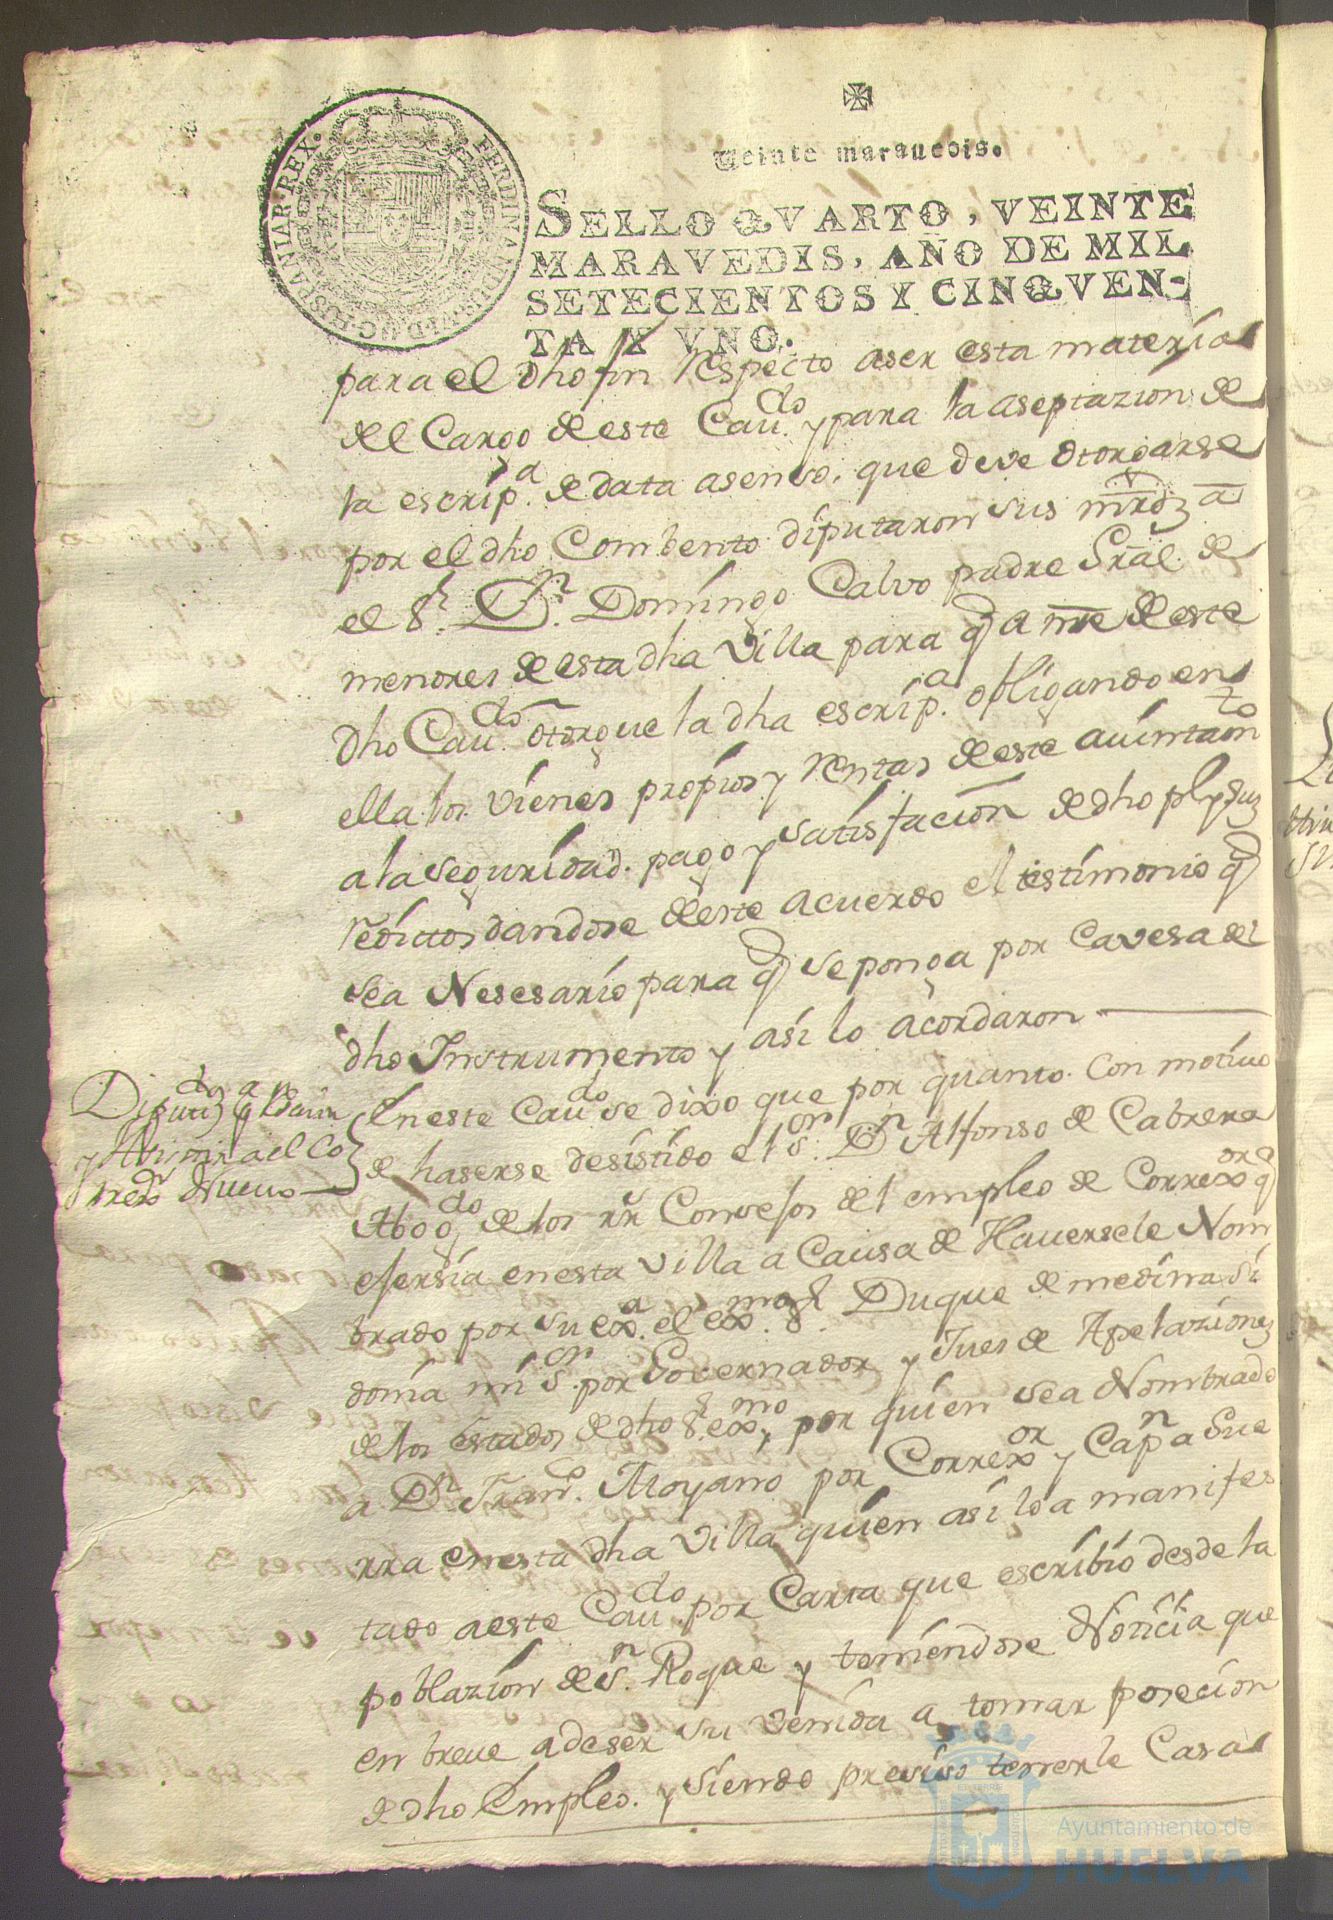 FERDINANDUS·VI·D·G·HISPANIAR·REX·
Veinte marauedis.
SELLO QVARTO, VEINTE
MARAVEDIS, AÑO DE MIL
SETECIENTOS Y CINQVEN-
TA Y VNO.
para el dho fin Respecto aser esta materia
del Cargo de este Cau.do y para la aseptazion de
la escrip.a de data asenso, que deve otorgarse
por el dho Combento diputaron sus mrdz a
el S.r D.n Domingo Calvo padre Gral de
menores de esta dha Villa para q a nre de este
dho Cau.do otorgue la dha escrip.a obligando en
ella los vienes propios y Rentas de este auintam.to
a la seguridad pago y satisfacion de dho pl y sus
reditos dandose de este acuerdo el testimonio q
sea Nesesario para q se ponga por Cavesa del
dho Instrumento y asi lo acordaron
Diput.dos a
y el Co
rex.or Nuevo
En este Cau.do se dixo que por quanto con motivo
de haserse desistido el S.or D.n Alfonso de Cabrera
Abog.do de los rr Consejos del empleo de Correx.or q
efersia en esta Villa a Causa de Hauersele Nom
brado por su ex.a el ex.mo S.r Duque de medina Si
donia mi S.or por Governador y Jues de Apelaziones
de los estados de dho S.r ex.mo y por quien sea Nombrado
a D.n Fran.co Moyano por Correx.or y Cap.n a Gue
rra en esta dha Villa quien asi lo a manifes
tado a este Cau.do por Carta que escribio desde la
poblazion de S.n Roque y teniendose Noticia que
en breve a de ser su venida a tomar posecion
de dho Empleo. y siendo presiso tenerle Casa
Ayuntamiento de
HUELVA